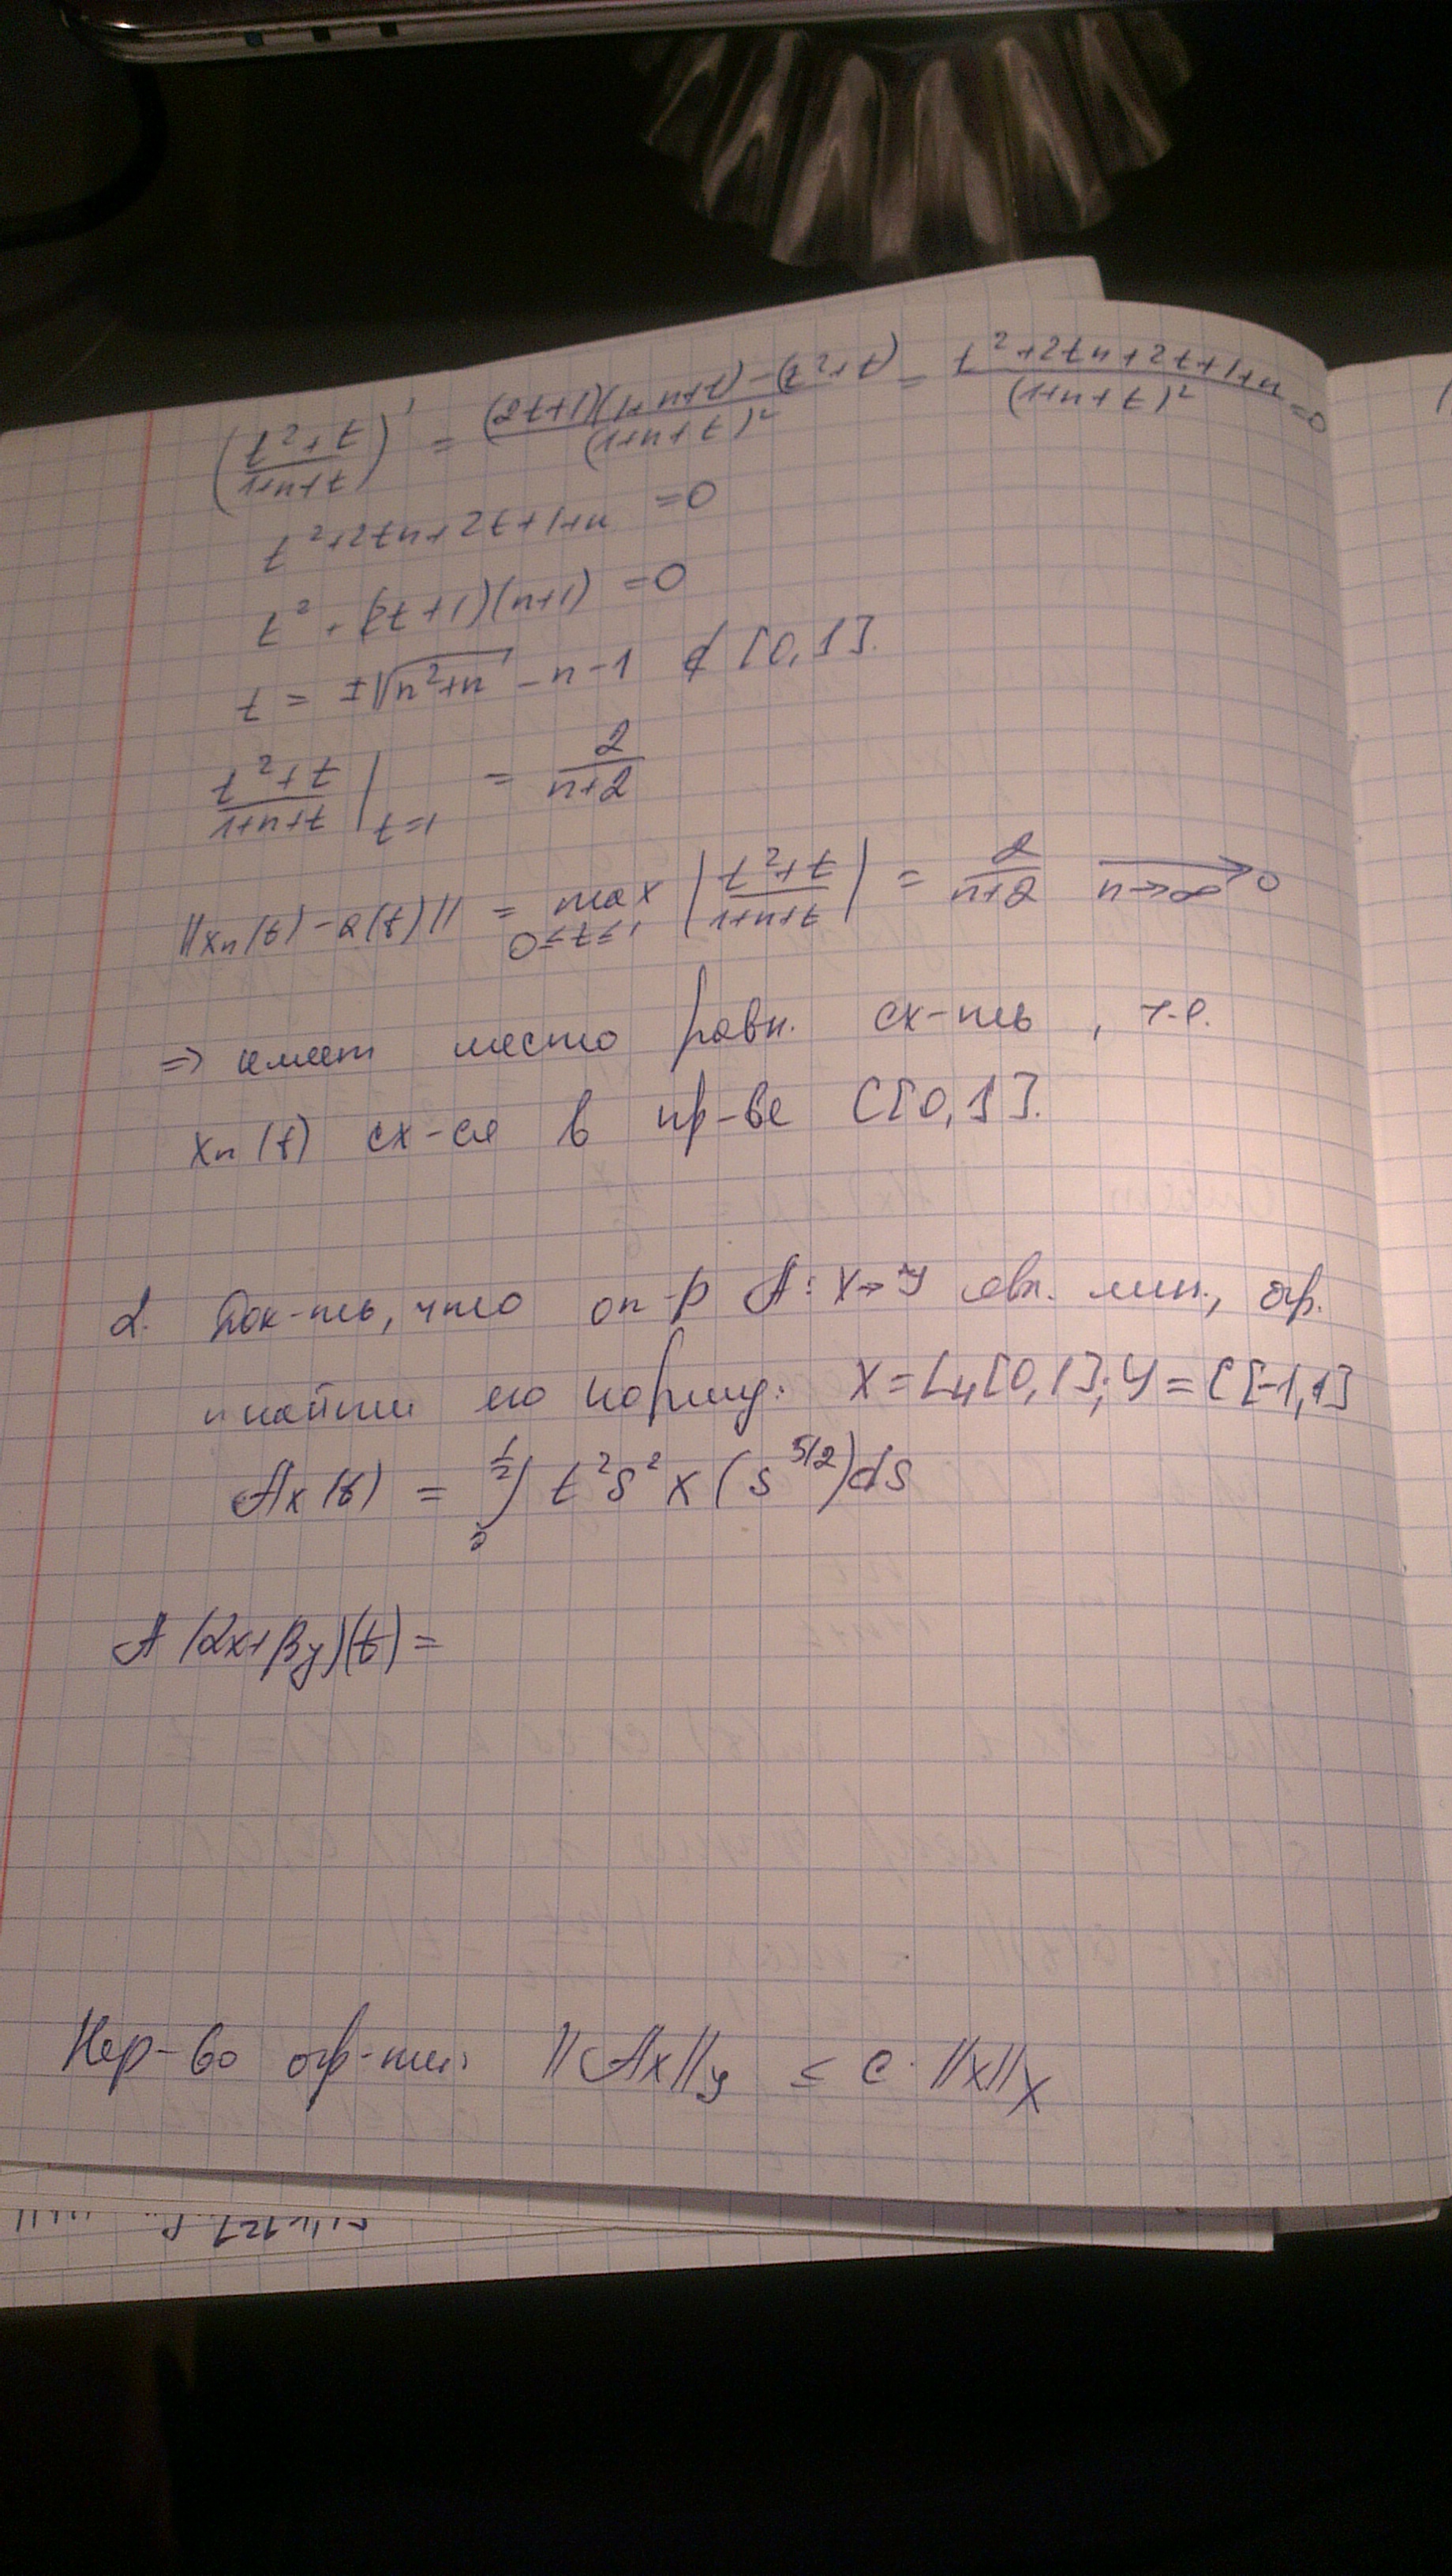 (t²+t / t+n+1)' = (2t+1)(t+n+1) - (t²+t) / (t+n+1)² = t²+2tn+2t+1+n / (t+n+1)² = 0
t²+2tn+2t+1+n = 0
t² + (2t+1)(n+1) = 0
t = ±√n²+n - n-1 ∉ [0,1].
t²+t / t+n+1 |t=1 = 2 / n+2
||xn(t)-a(t)|| = max 0≤t≤1 |t²+t / t+n+1| = 2 / n+2 → n→∞ 0
⇒ имеет место равн. сх-ть, т.е.
xn(t) сх-ся в пр-ве C[0,1].
2. Док-ть, что оп-р A: X→Y явл. лин., огр.
и найти его норму: X=L₄[0,1]; Y=C[-1,1]
Ax(t) = ∫ t²s² x(s^5/2)ds
A(αx+βy)(t) =
Нер-во огр-ти: ||Ax||y ≤ c·||x||X